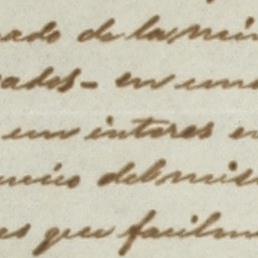 ado de la min
ados - en un
un interes e
del mis
es que facilm